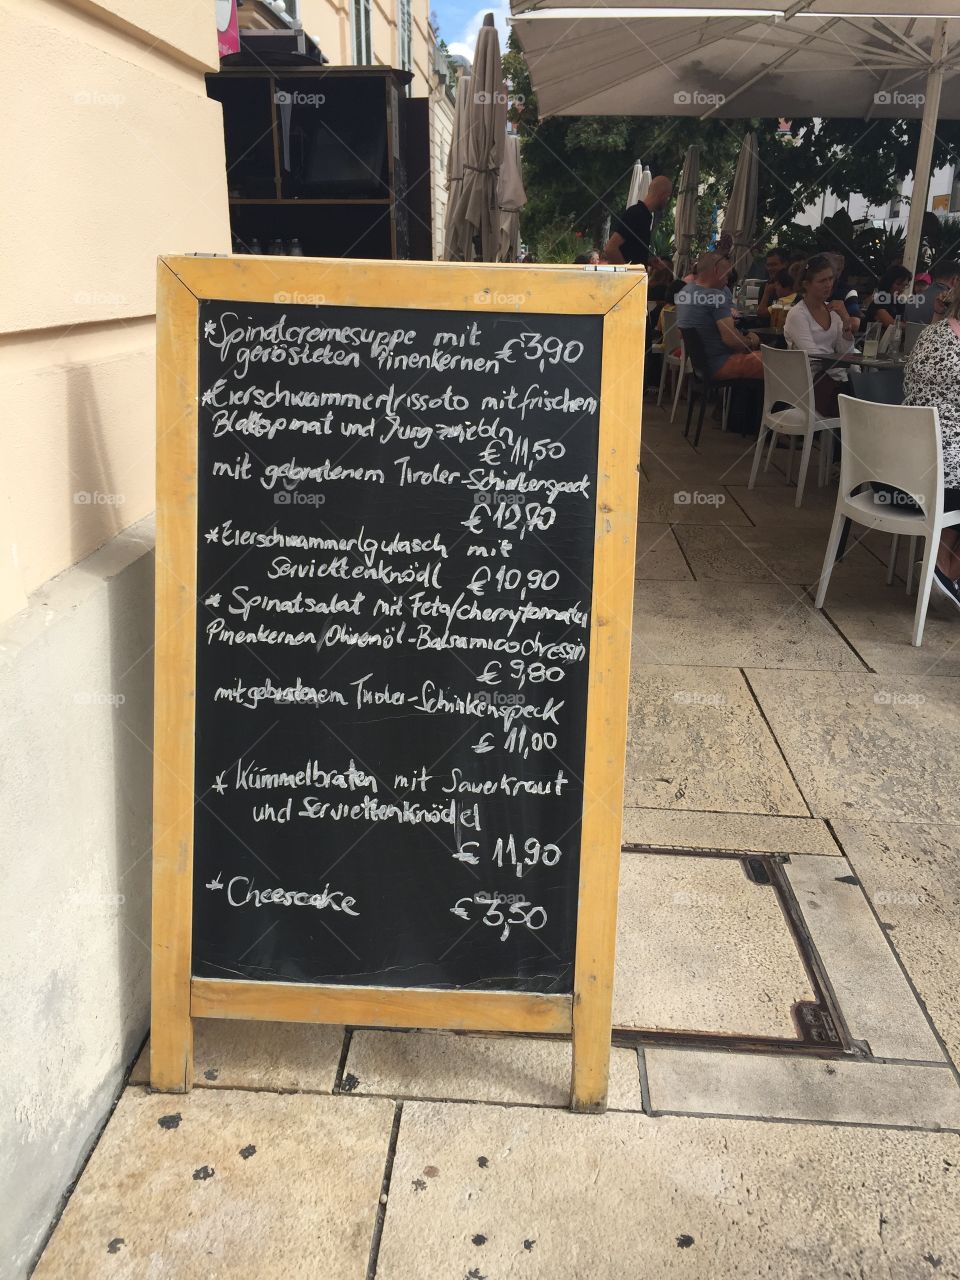 *Spinatcremesuppe mit
gerösteten Pinenkernen €3,90
*Eierschwammerlrissoto mit frischem
Blattspinat und Jungzwiebln
€11,50
mit gebratenem Tiroler-Schinkenspeck
€12,70
*Eierschwammerlgulasch mit
Serviettenknödl €10,90
* Spinatsalat mit Feta/Cherrytomaten
Pinenkernen/Olivenöl-Balsamicodressin
€ 9,80
mit gebratenem Tiroler-Schinkenspeck
€ 11,00
* Kümmelbraten mit Sauerkraut
und Serviettenknödel
€ 11,90
* Cheescake €3,50